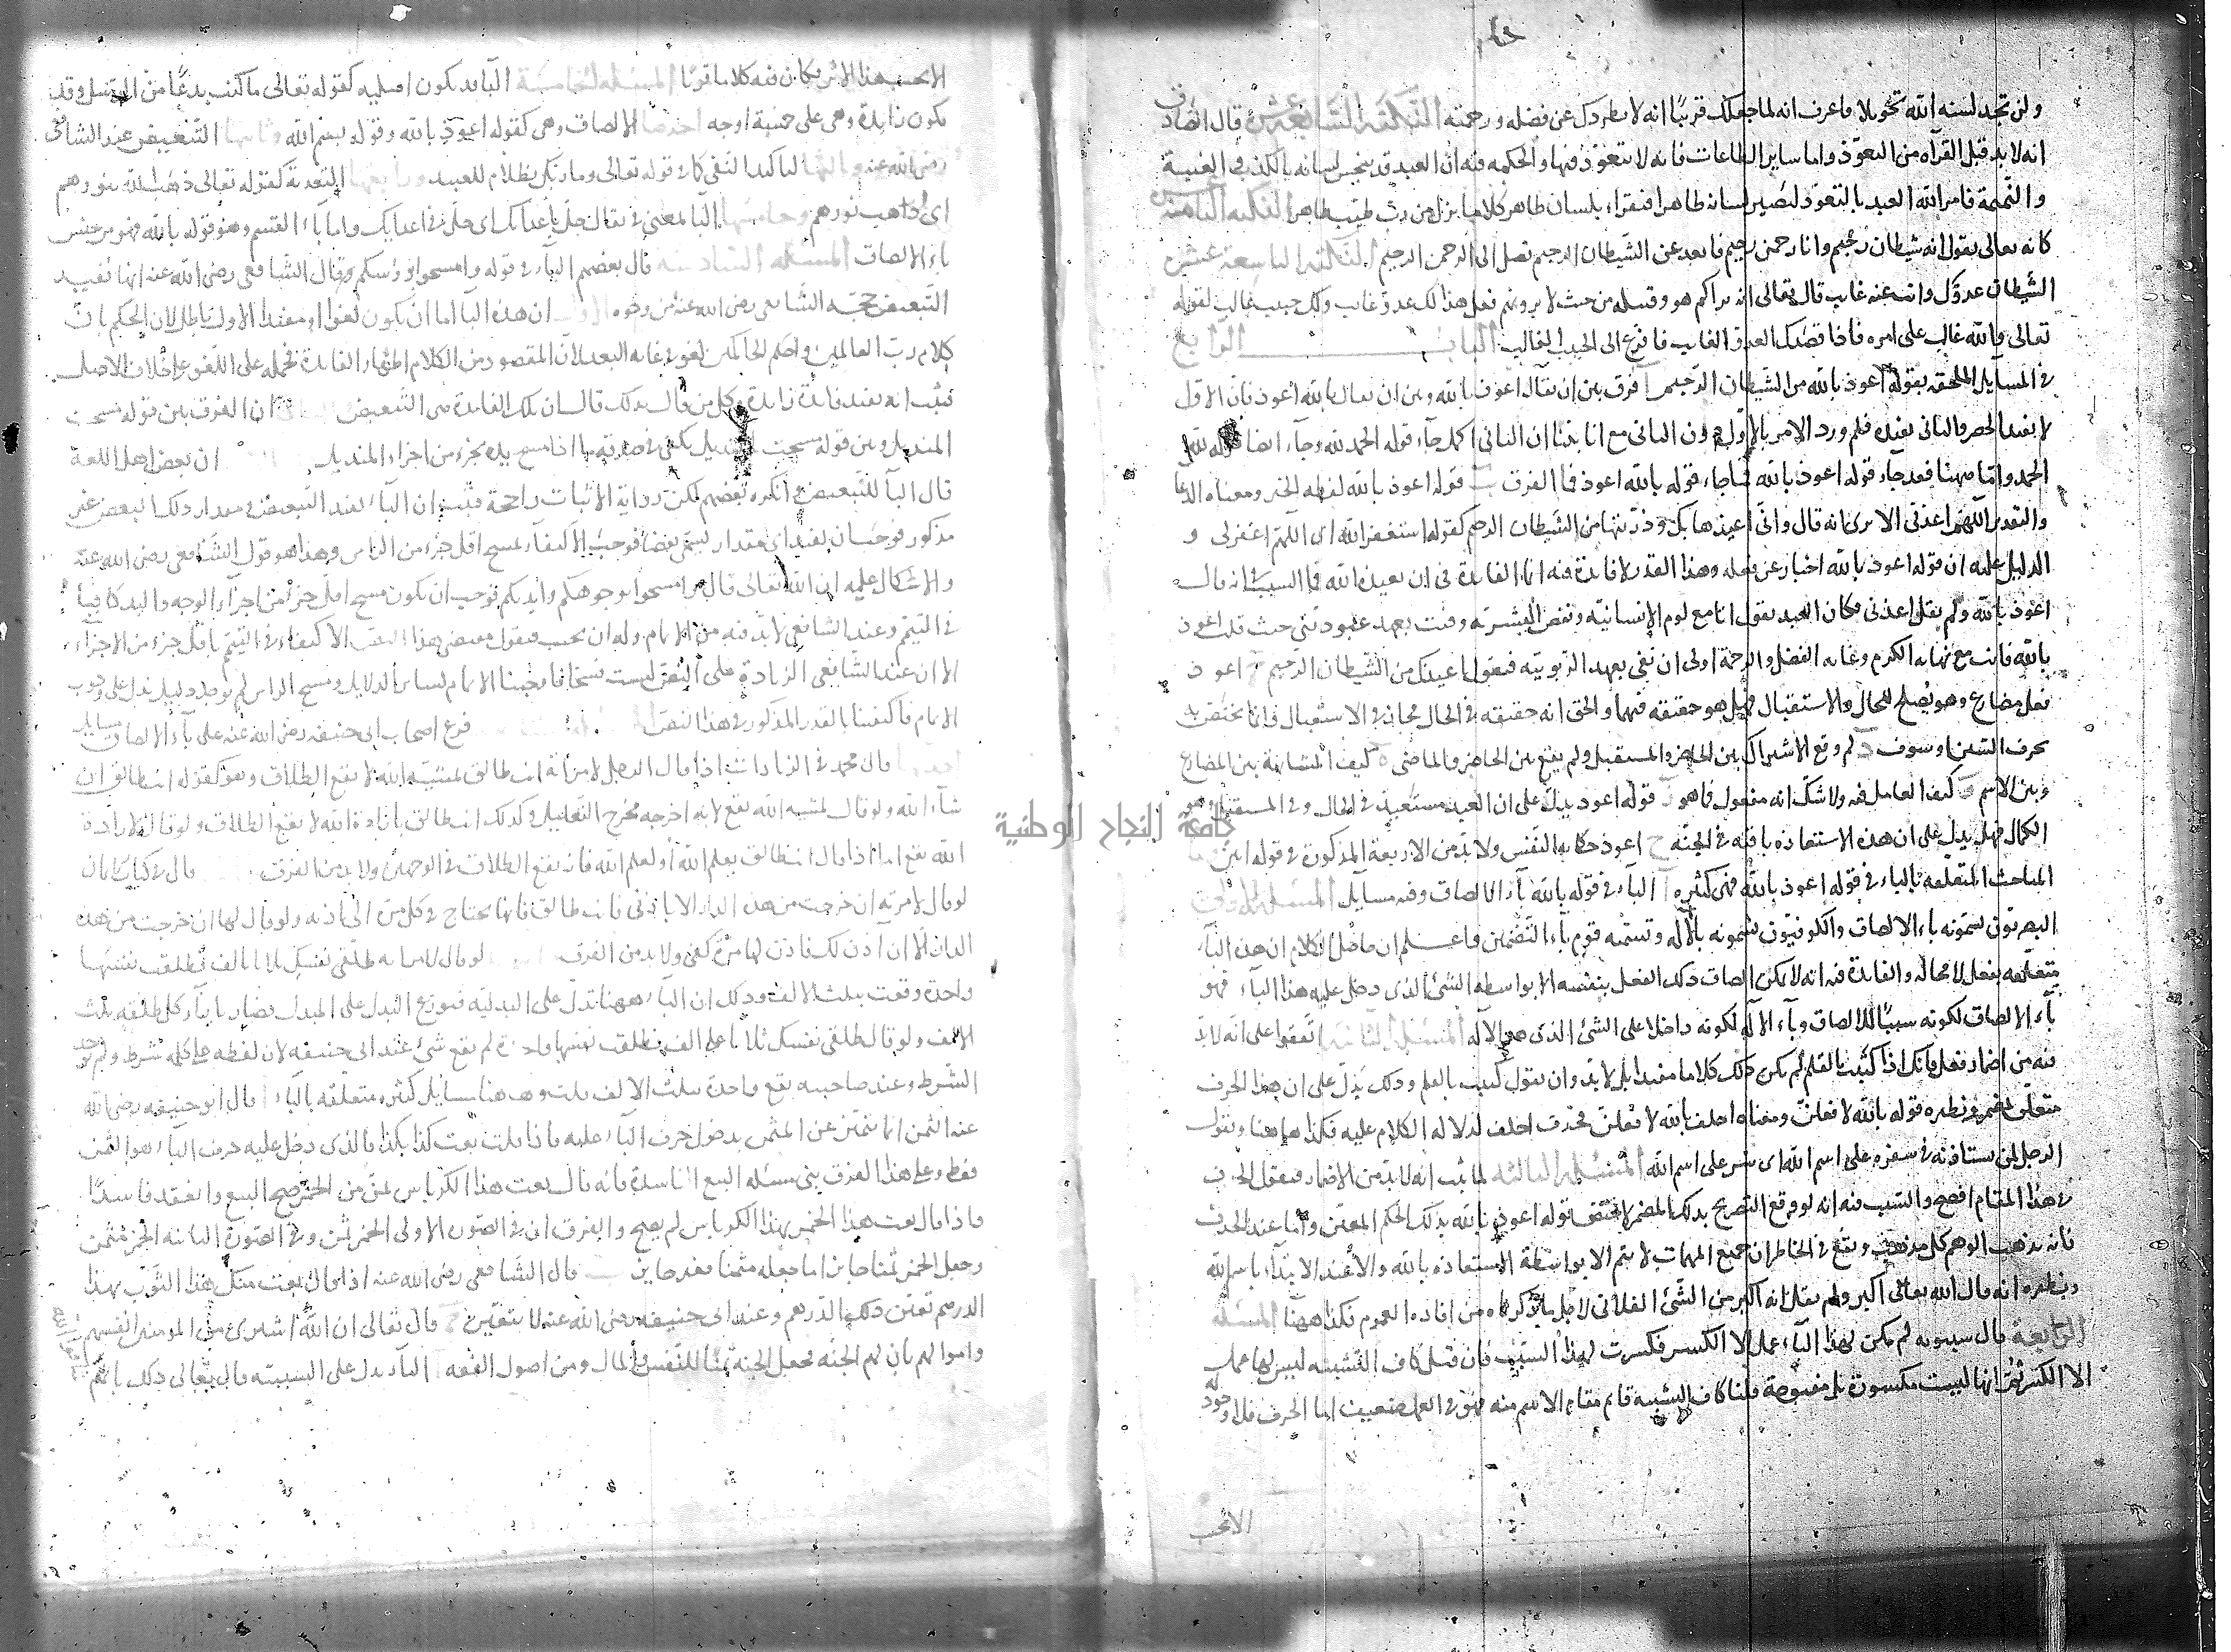 ولن تجد لسنه الله تحويلا فاعرف انه لما جعلك قريبا انه لا يطردك عن فضله ورحمته النكتة السابعة عشر قال الصادق
انه لا بد قبل القرآه من التعوّذ واما ساير الطاعات فانه لا يتعوّذ فيها والحكمه فيه ان العبد قد ينجس لسانه بالكذب في الغيبة
والنميمة فامر الله العبد بالتعوّذ ليصير لسانه طاهرا فيقراء بلسان طاهر كلاما نزل من رب طيّب طاهر النكته الثامنة عشر
كانه تعالى يقول انه شيطان رجيم وانا رحمن رحيم فابعد عن الشيطان الرجيم تصل الى الرحمن الرحيم النكتة التاسعة عشر
الشيطان عدوّك وانت عنه غايب قال تعالى انه يراكم هو وقبيله من حيث لا ترونهم فعلى هذا لك عدوّ غايب ولك حبيب غالب لقوله
تعالى والله غالب على امره فاذا قصدك العدوّ الغايب فافزع الى الحبيب الغالب الباب الرابع
في المسايل الملحقه بقوله اعوذ بالله من الشيطان الرّجيم آ فرق بين ان يقال اعوذ بالله وبين ان يقال بالله اعوذ فان الاول
لا يفيد الحصر والثاني يفيده فلم ورد الامر بالاوّل دون الثاني مع انا بيّنا ان الثاني اكمل جآء قوله الحمد لله وجآء ايضا قوله لله
الحمد وامّا ههنا فقد جآء قوله اعوذ بالله وما جاء قوله بالله اعوذ فما الفرق ب قوله اعوذ بالله لفظه الخبر ومعناه الدعا
والتقدير اللهم اعذنى الا ترى انه قال وانّي اعيذها بك وذرّيتها من الشيطان الرجيم كقوله استغفر الله اى اللهمّ اغفرلى و
الدليل عليه ان قوله اعوذ بالله اخبار عن فعله وهذا القدر لا فايدة فيه انما الفايدة في ان يعيذه الله فما السبب في انه قال
اعوذ بالله ولم يقل اعذنى فكان العبد يقول انا مع لوم الانسانيّة ونقض البشريّه وفيت بعهد عبوديّتي حيث قلت اعوذ
بالله فانت مع نهايه الكرم وغايه الفضل والرحمة اولى ان تفى بعهد الربوبيّه فتقول اعيذك من الشيطان الرجيم ج اعوذ
فعل مضارع وهو يصلح للحال والاستقبال فهل هو حقيقه فيهما والحق انه حقيقه في الحال مجاز في الاستقبال وانما يختص به
بحرف السّين وسوف د لم وقع الاشتراك بين الحاضر والمستقبل ولم يقع بين الحاضر والماضى ه كيف المشابهة بين المضارع
وبين الاسم و كيف العامل فيه ولا شك انه معمول فما هو ز قوله اعوذ يدلّ على ان العبد مستعيذ في الحال وفي المستقبل وهو
الكمال فهل يدل على ان هذه الاستعاذه باقيه في الجنّه ح اعوذ حكايه النّفس ولا بدّ من الاربعة المذكورة في قوله اتين اما
المباحث المتعلقه بالباء في قوله اعوذ بالله فهى كثيره آ البآء في قوله بالله بآء الالصاق وفيه مسآيل المسئله الاولى
البصريّون يسمّونه باء الالصاق والكوفيّون يسمّونه بآء الآله وتسمّيه قوم بآء التّضمين واعلم ان حاصل الكلام ان هذه البآء
متعلّقه بفعل لا محاله والفايدة فيه انه لا يمكن الصاق ذلك الفعل بنفسه الا بواسطه الشئ الذى دخل عليه هذا البآء فهو
بآء الالصاق لكونه سببًا للالصاق وبآء الآله لكونه داخلا على الشئ الذى هو الآله المسئلة الثانيه اتّفقوا على انه لا بدّ
فيه من اضمار فعل فانك اذا كتبت بالقلم لم يكن ذلك كلاما مفيدا بل لا بدّ وان تقول كتبت بالقلم وذلك يدلّ على ان هذا الحرف
متعلّق بمضمر ونظيره قوله بالله لافعلنّ ومعناه احلف بالله لافعلنّ فحذف احلف لدلاله الكلام عليه فكذا ها هنا ويقول
الرجل لمن يستاذنه في سفره على اسم الله اى سر على اسم الله المسئلة الثالثه لما ثبت انه لا بدّ من الاضمار فنقول الحذف
في هذا المقام افصح والسّبب فيه انه لو وقع التصريح بذلك المضمر لاختصّ قوله اعوذ بالله بذلك الحكم المعيّن وامّا عند الحذف
فانه يذهب الوهم كلّ مذهب ويقع في الخاطر ان جميع المهمات لا يتم الا بواسطة الاستعاذه بالله والّا عند الابتدآء باسم الله
ونظيره انه قال الله تعالى اكبر ولم يقل انه اكبر من الشّئ الفلانى لاجل ما ذكرناه من افاده العموم فكذا ههنا المسئلة
الرّابعة قال سيبويه لم يكن لهذا البآء عمل الا الكسر فكسرت لهذا السّبب فان قيل كاف التّشبيه ليس لها عمل
الا الكسر ثمّ انها ليست مكسورة بل مفتوحة قلنا كاف التشبيه قايم مقام الاسم منه فهو في العمل ضعيف اما الحرف فلا وجود له
الا بحسب
الا بحسب هذا الاثر فكان فيه كلاما قويّا المسئله الخامسة البآء قد يكون اصليه كقوله تعالى ما كنت بدعًا من الرّسل وقد
يكون زايدة وهى على خمسة اوجه احدها الالصاق وهى كقوله اعوذ بالله وقوله بسم الله وثانيها التّبعيض عند الشافعى
رضى الله عنه وثالثها لتاكيد النّفى كما في قوله تعالى وما ربّك بظلّام للعبيد ورابعها التّعدية كقوله تعالى ذهب الله بنورهم
اى اذهب نورهم وخامسها البآء بمعنى في يقال حلّ باعدآئك اى حلّ في اعدايك واما بآء القسم وهو قوله بالله فهو من جنس
باء الالصاق المسئله السادسه قال بعضهم البآء في قوله وامسحوا برؤسكم وقال الشّافعى رضى الله عنه انها تفيد
التّبعيض حجّه الشّافعى رضى الله عنه من وجوه الاول ان هذه البآء اما ان يكون لغوا او مفيدا الاول باطل لان الحكم بانّ
كلام ربّ العالمين واحكم الحاكمين لغو في غايه البعد لانّ المقصود من الكلام اظهار الفايدة فحمله على اللّغو على خلاف الاصل
فثبت انه يفيد فايدة زايدة وكل من قال بذلك قال ان تلك الفايدة هى التّبعيض الثانى ان الفرق بين قوله مسحت
المنديل وبين قوله مسحت بالمنديل يكفى في صدقه ما اذا مسح يده بجزء من اجزاء المنديل ان بعض اهل اللغة
قال البآ للتّبعيض وانكره بعضهم لكن رواية الاثبات راجحة فثبت ان البآء تفيد التّبعيض ومقدار ذلك البعض غير
مذكور فوجب ان يفيد اىّ مقدار يسمّى بعضا فوجب الاكتفآء بمسح اقل جزء من الناس وهذا هو قول الشّافعى رضى الله عنه
والاشكال عليه ان الله تعالى قال فامسحوا بوجوهكم وايديكم فوجب ان يكون مسح اقل جزء من اجزآء الوجه واليد كافيا
في التيمّم وعند الشافعى لا بدّ فيه من الاتمام وله ان يجيب فيقول مقتضى هذا النّص الاكتفآء في التيمّم باقلّ جزء من الاجزآء
الا ان عند الشّافعى الزيادة على النّص ليست نسخا فاوجبنا الاتمام لساير الدلايل وفي مسح الراس لم يوجد دليل يدل على وجوب
الاتمام فاكتفينا بالقدر المذكور في هذا النّص فرع اصحاب ابى حنيفه رضى الله عنه على بآء الالصاق مسايل
احديها قال محمد في الزيادات اذا قال الرجل لامراته انت طالق بمشيّه الله لا يقع الطلاق وهو كقوله انت طالق ان
شآء الله ولو قال لمشيه الله يقع لانه اخرجه مخرج التّعليل وكذلك انت طالق بارادة الله لا يقع الطلاق ولو قال لارادة
الله يقع اما اذا قال انت طالق بعلم الله او لعلم الله فانه يقع الطلاق في الوجهين ولا بد من الفرق قال في كتاب الايمان
لو قال لامرته ان خرجت من هذه الدار الا باذنى فانت طالق فانها يحتاج في كل مرة الى اذنه ولو قال لها ان خرجت من هذه
الدار الّا ان آذن لك فاذن لها مرّة كفى ولا بد من الفرق لو قال لامراته طلّقى نفسك ثلاثا بالف فطلقت نفسها
واحدة وقعت بثلث الالف وذلك ان البآء ههنا تدلّ على البدليّه فيوزع البدل على المبدل فصار بازآء كل طلقه ثلث
الالف ولو قال طلقى نفسك ثلاثا على الف فطلقت نفسها واحدة لم يقع شئ عند ابى حنيفه لان لفظه على كلمه شرط ولم يوجد
الشّرط وعند صاحبيه يقع واحدة بثلث الالف قلت وههنا مسايل كثيره متعلقه بالبآء آ قال ابو حنيفه رضى الله
عنه الثمن انما يتميّز عن المثمن بدخول حرف البآء عليه فاذا قلت بعت كذا بكذا فالذى دخل عليه حرف البآء هو الثمن
فقط وعلى هذا الفرق بنى مسئله البيع الفاسد فانه قال بعت هذا الكرباس بمنّ من الخمر صح البيع وانعقد فاسدًا
واذا قال بعت هذا الخمر بهذا الكرباس لم يصح والفرق ان في الصّورة الاولى الخمر ثمن وفي الصّورة الثانيه الخمر مثمن
وجعل الخمر ثمنا جايز اما جعله مثمنا فغير جايز ب قال الشّافعى رضى الله عنه اذا قال بعت منك هذا الثّوب بهذا
الدرهم تعيّن ذلك الدّرهم وعند ابى حنيفه رضى الله عنه لا يتعيّن ج قال تعالى ان الله اشترى من المومنين انفسهم
واموالهم بان لهم الجنّه فجعل الجنة ثمنًا للنّفس والمال ومن اصول الفقه آ البآء يدل على السببيّه قال تعالى ذلك بانهم
جامعة النجاح الوطنية